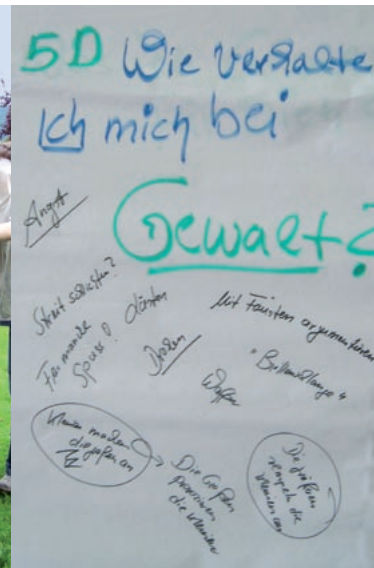 5D Wie verhalte
Ich mich bei
Gewalt?
Angst
Streit schlichten?
Für manche
Spass?
lästern
Drohen
Mit Fäusten argumentieren
"Brillenschlange"
Waffen
Kleine machen
die großen an
Die Großen
provozieren
die kleinen
Die größeren
rempeln die
kleinen an